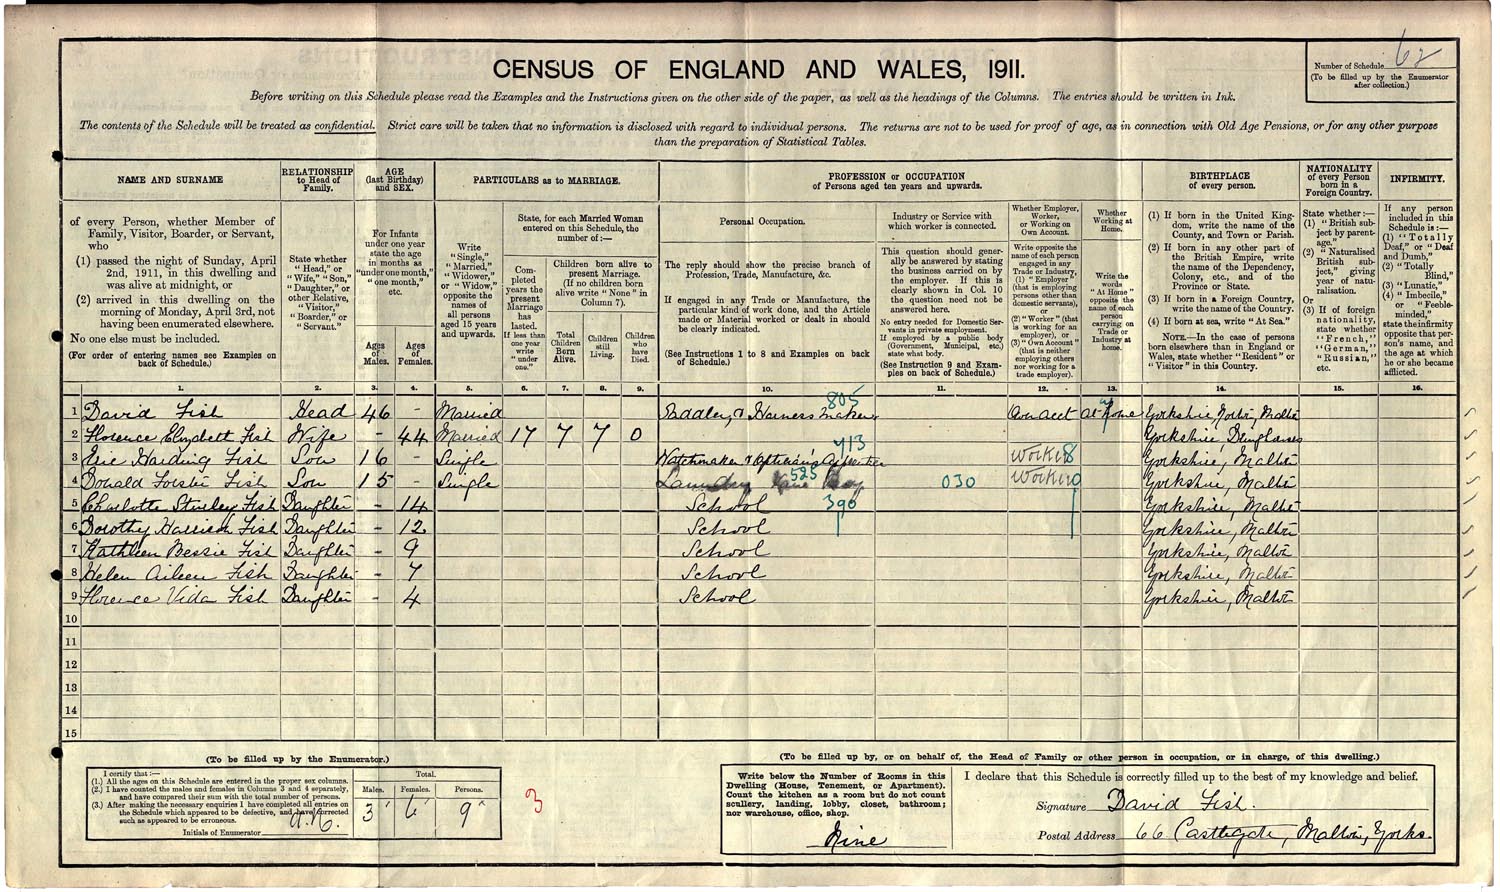 CENSUS OF ENGLAND AND WALES, 1911.
Number of Schedule 62
(To be filled up by the Enumerator after collection.)
Before writing on this Schedule please read the Examples and the Instructions given on the other side of the paper, as well as the headings of the Columns. The entries should be written in Ink.
The contents of the Schedule will be treated as confidential. Strict care will be taken that no information is disclosed with regard to individual persons. The returns are not to be used for proof of age, as in connection with Old Age Pensions, or for any other purpose
than the preparation of Statistical Tables.
NAME AND SURNAME
of every Person, whether Member of Family, Visitor, Boarder, or Servant, who
(1) passed the night of Sunday, April 2nd, 1911, in this dwelling and was alive at midnight, or
(2) arrived in this dwelling on the morning of Monday, April 3rd, not having been enumerated elsewhere.
No one else must be included.
(For order of entering names see Examples on back of Schedule.)
RELATIONSHIP to Head of Family.
State whether "Head," or "Wife," "Son," "Daughter," or other Relative, "Visitor," "Boarder," or "Servant."
AGE (last Birthday) and SEX.
For Infants under one year state the age in months as "under one month," "one month," etc.
Ages of Males.
Ages of Females.
PARTICULARS as to MARRIAGE.
Write "Single," "Married," "Widower," or "Widow," opposite the names of all persons aged 15 years and upwards.
State, for each Married Woman entered on this Schedule, the number of:—
Completed years the present Marriage has lasted. If less than one year write "under one."
Children born alive to present Marriage. (If no children born alive write "None" in Column 7).
Total Children Born Alive.
Children still Living.
Children who have Died.
PROFESSION or OCCUPATION of Persons aged ten years and upwards.
Personal Occupation.
The reply should show the precise branch of Profession, Trade, Manufacture, &c.
If engaged in any Trade or Manufacture, the particular kind of work done, and the Article made or Material worked or dealt in should be clearly indicated.
(See Instructions 1 to 8 and Examples on back of Schedule.)
Industry or Service with which worker is connected.
This question should generally be answered by stating the business carried on by the employer. If this is clearly shown in Col. 10 the question need not be answered here.
No entry needed for Domestic Servants in private employment. If employed by a public body (Government, Municipal, etc.) state what body.
(See Instruction 9 and Examples on back of Schedule.)
Whether Employer, Worker, or Working on Own Account.
Write opposite the name of each person engaged in any Trade or Industry, (1) "Employer" (that is employing persons other than domestic servants), or (2) "Worker" (that is working for an employer), or (3) "Own Account" (that is neither employing others nor working for a trade employer).
Whether Working at Home.
Write the words "At Home" opposite the name of each person carrying on Trade or Industry at home.
BIRTHPLACE of every person.
(1) If born in the United Kingdom, write the name of the County, and Town or Parish.
(2) If born in any other part of the British Empire, write the name of the Dependency, Colony, etc., and of the Province or State.
(3) If born in a Foreign Country, write the name of the Country.
(4) If born at sea, write "At Sea."
NOTE.—In the case of persons born elsewhere than in England or Wales, state whether "Resident" or "Visitor" in this Country.
NATIONALITY of every Person born in a Foreign Country.
State whether:—
(1) "British subject by parentage."
(2) "Naturalised British subject," giving year of naturalisation.
Or
(3) If of foreign nationality, state whether "French," "German," "Russian," etc.
INFIRMITY.
If any person included in this Schedule is:—
(1) "Totally Deaf," or "Deaf and Dumb,"
(2) "Totally Blind,"
(3) "Lunatic,"
(4) "Imbecile," or "Feeble-minded," state the infirmity opposite that person's name, and the age at which he or she became afflicted.
1. 2. 3. 4. 5. 6. 7. 8. 9. 10. 11. 12. 13. 14. 15. 16.
1 David Fish Head 46 - Married Saddler, & Harness maker 805 Own acct at home Yorkshire Norton, Malton
2 Florence Elizabeth Fish Wife - 44 Married 17 7 7 0 Yorkshire
3 Eric Harding Fish Son 16 - Single Watchmaker & Optician's 713 Worker Yorkshire, Malton
4 Donald Forster Fish Son 15 - Single Laundry Boy 525 030 Worker Yorkshire, Malton
5 Charlotte Fish Daughter - 14 School 390 Yorkshire, Malton
6 Dorothy Harrison Fish Daughter - 12 School Yorkshire, Malton
7 Kathleen Bessie Fish Daughter - 9 School Yorkshire, Malton
8 Helen Aileen Fish Daughter - 7 School Yorkshire, Malton
9 Florence Vida Fish Daughter - 4 School Yorkshire, Malton
10
11
12
13
14
15
(To be filled up by the Enumerator.)
I certify that:—
(1.) All the ages on this Schedule are entered in the proper sex columns.
(2.) I have counted the males and females in Columns 3 and 4 separately, and have compared their sum with the total number of persons.
(3.) After making the necessary enquiries I have completed all entries on the Schedule which appeared to be defective, and have corrected such as appeared to be erroneous.
Initials of Enumerator
Total.
Males. Females. Persons.
3 6 9
3
(To be filled up by, or on behalf of, the Head of Family or other person in occupation, or in charge, of this dwelling.)
Write below the Number of Rooms in this Dwelling (House, Tenement, or Apartment). Count the kitchen as a room but do not count scullery, landing, lobby, closet, bathroom; nor warehouse, office, shop.
Nine
I declare that this Schedule is correctly filled up to the best of my knowledge and belief.
Signature David Fish.
Postal Address 66 Castlegate, Malton, Yorks.